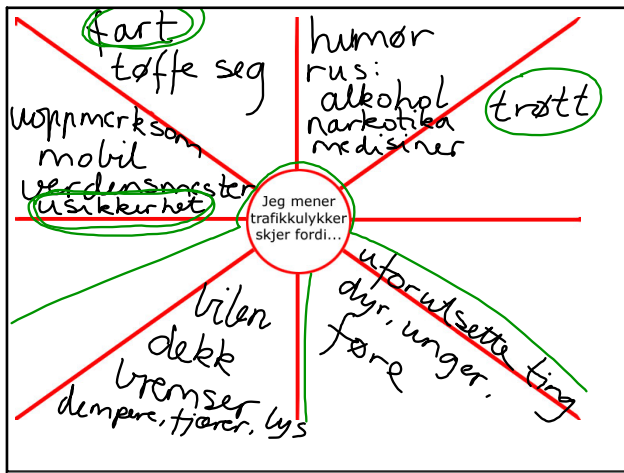 fart
tøffe seg
humør
rus:
alkohol
narkotika
medisiner
trøtt
uoppmerksom
mobil
verdensmester
usikkerhet
Jeg mener
trafikkulykker
skjer fordi...
bilen
dekk
bremser
dempere, fjærer, lys
uforutsette ting
dyr, unger,
føre